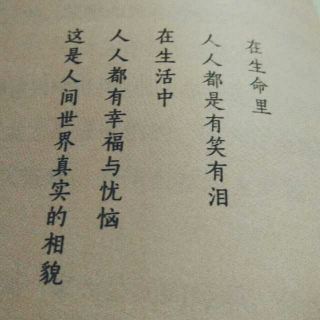 在生命里
人人都是有笑有泪
在生活中
人人都有幸福与忧恼
这是人间世界真实的相貌